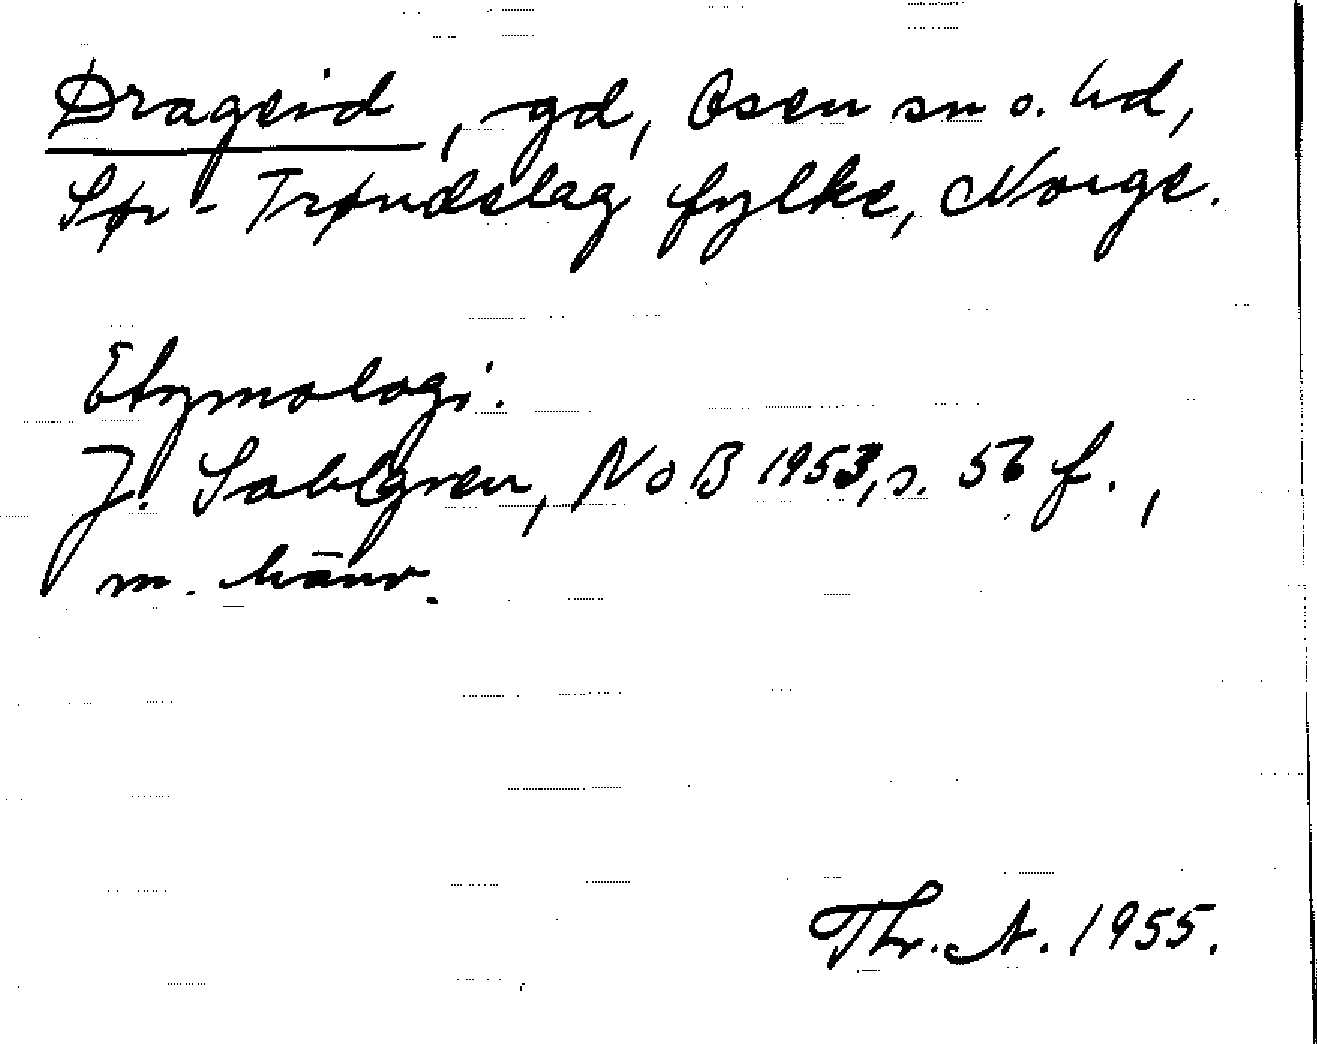 Drageid, gd, Osen sn o. hd,
Sør-Trøndelag fylke, Norge.
Etymologi.
J. Sahlgren, NoB 1953, s. 56 f.,
m. hänv.
Thr. A. 1955.